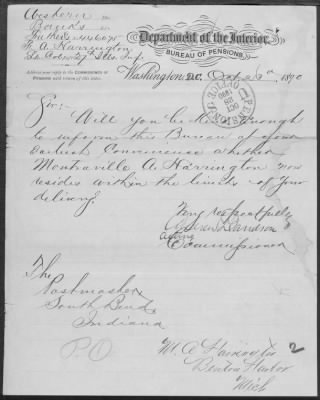 Department of the Interior,
BUREAU OF PENSIONS,
Washington, D.C. Oct 23d, 1890
Address your reply to the COMMISSIONER OF
PENSIONS and return this letter.
F. A. Harrington
Sir:
Will you be kind enough
to inform this Bureau at your
earliest Convenience whether
Montraville A. Harrington now
resides within the limits of your
delivery.
Very respectfully
Acting
Commissioner
The
Postmaster
South Bend
Indiana
PO
M. A. Harrington 2
Benton Harbor
Mich